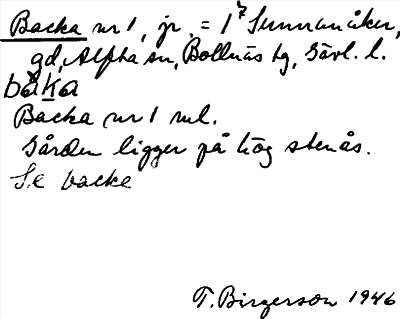 Backa nr 1, jr, = 1⁷ Sunnanåker,
gd, Alfta sn, Bollnäs tg, Gävl. l.
båka
Backa nr 1 ml.
Gården ligger på hög stenås.
Se backe
T. Birgerson 1946